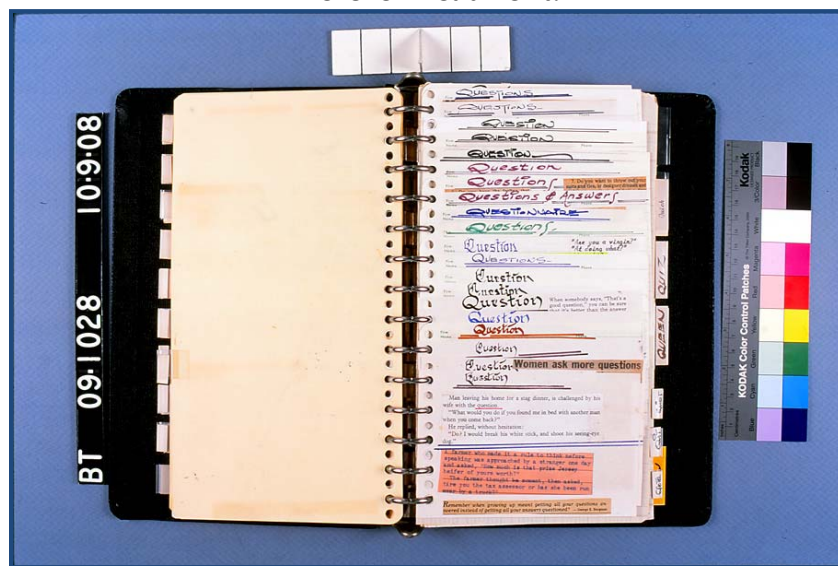 10·9·08
09·1028
BT
QUESTIONS
QUESTIONS
QUESTION
QUESTION
QUESTION
QUESTION
QUESTIONS
QUESTIONS & ANSWERS
QUESTIONNAIRE
QUESTIONS
Question
"Are you a virgin?"
"At doing what?"
QUESTIONS
Question
Question
Question
When somebody says, "That's a
good question," you can be sure
that it's better than the answer
Question
Question
Question
Question
Women ask more questions
Question
Man leaving his home for a stag dinner, is challenged by his
wife with the question
"What would you do if you found me in bed with another man
when you come back?"
He replied, without hesitation:
"Do? I would break his white stick, and shoot his seeing-eye
dog."
a farmer who made it a rule to think before
speaking was approached by a stranger one day
and asked, "How much is that prize Jersey
heifer of yours worth?"
The farmer thought a moment, then asked,
"Are you the tax assessor or has she been run
over by a truck?"
Remember when growing up meant getting all your questions an-
swered instead of getting all your answers questioned?
QUIZ
QUEEN
Kodak
KODAK Color Control Patches
Blue
Cyan
Green
Yellow
Red
Magenta
White
3/Color
Black